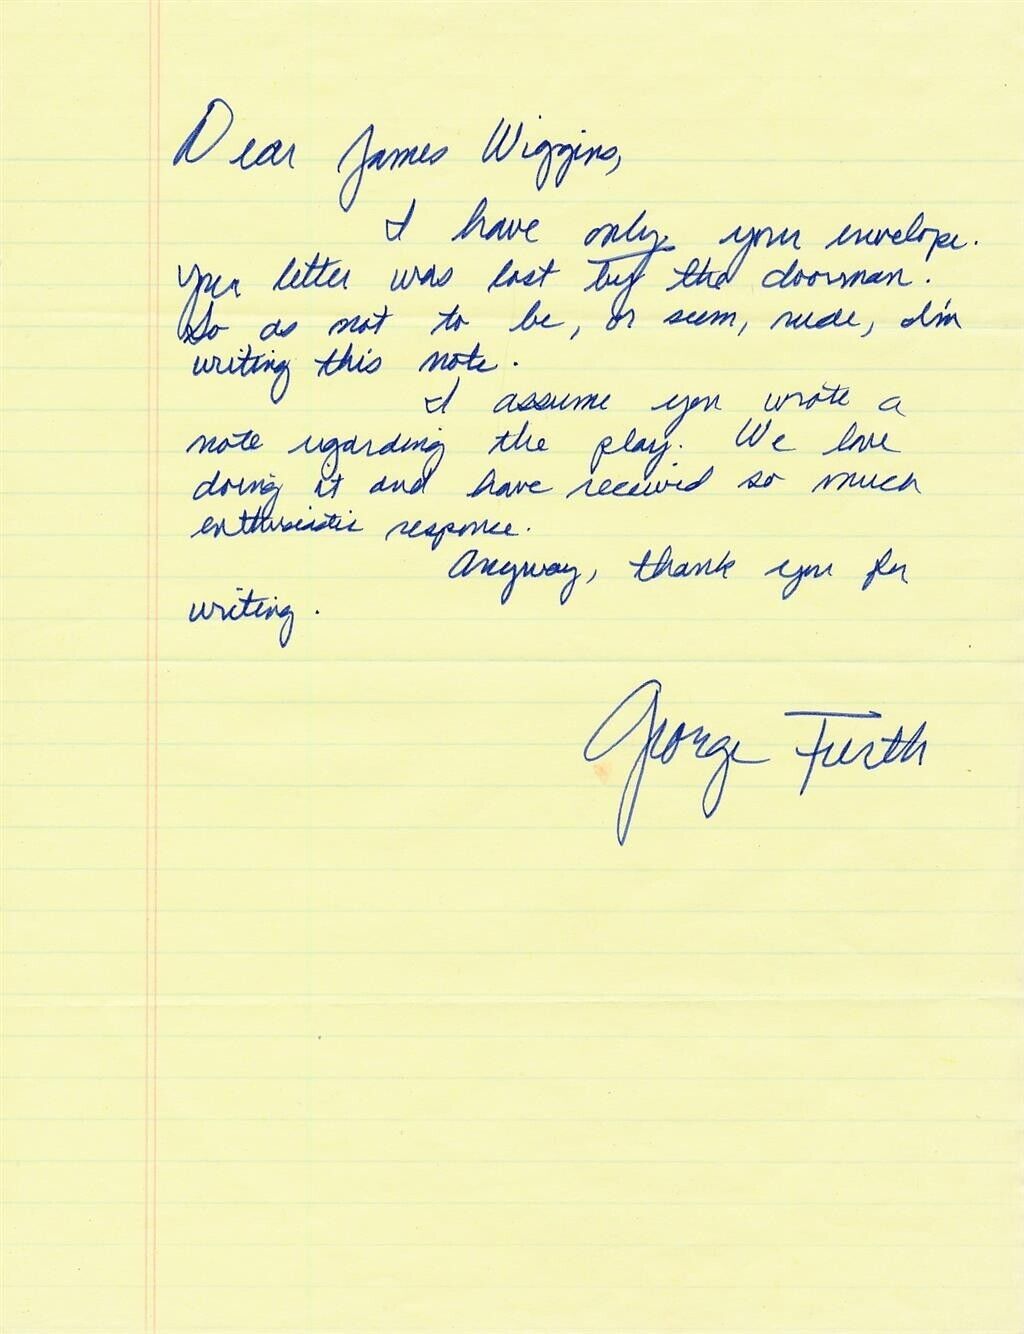 Dear James Wiggins,
I have only your envelope.
Your letter was lost by the doorman.
So as not to be, or seem, rude, I'm
writing this note.
I assume you wrote a
note regarding the play. We love
doing it and have received so much
enthusiastic responce.
Anyway, thank you for
writing.
George Furth